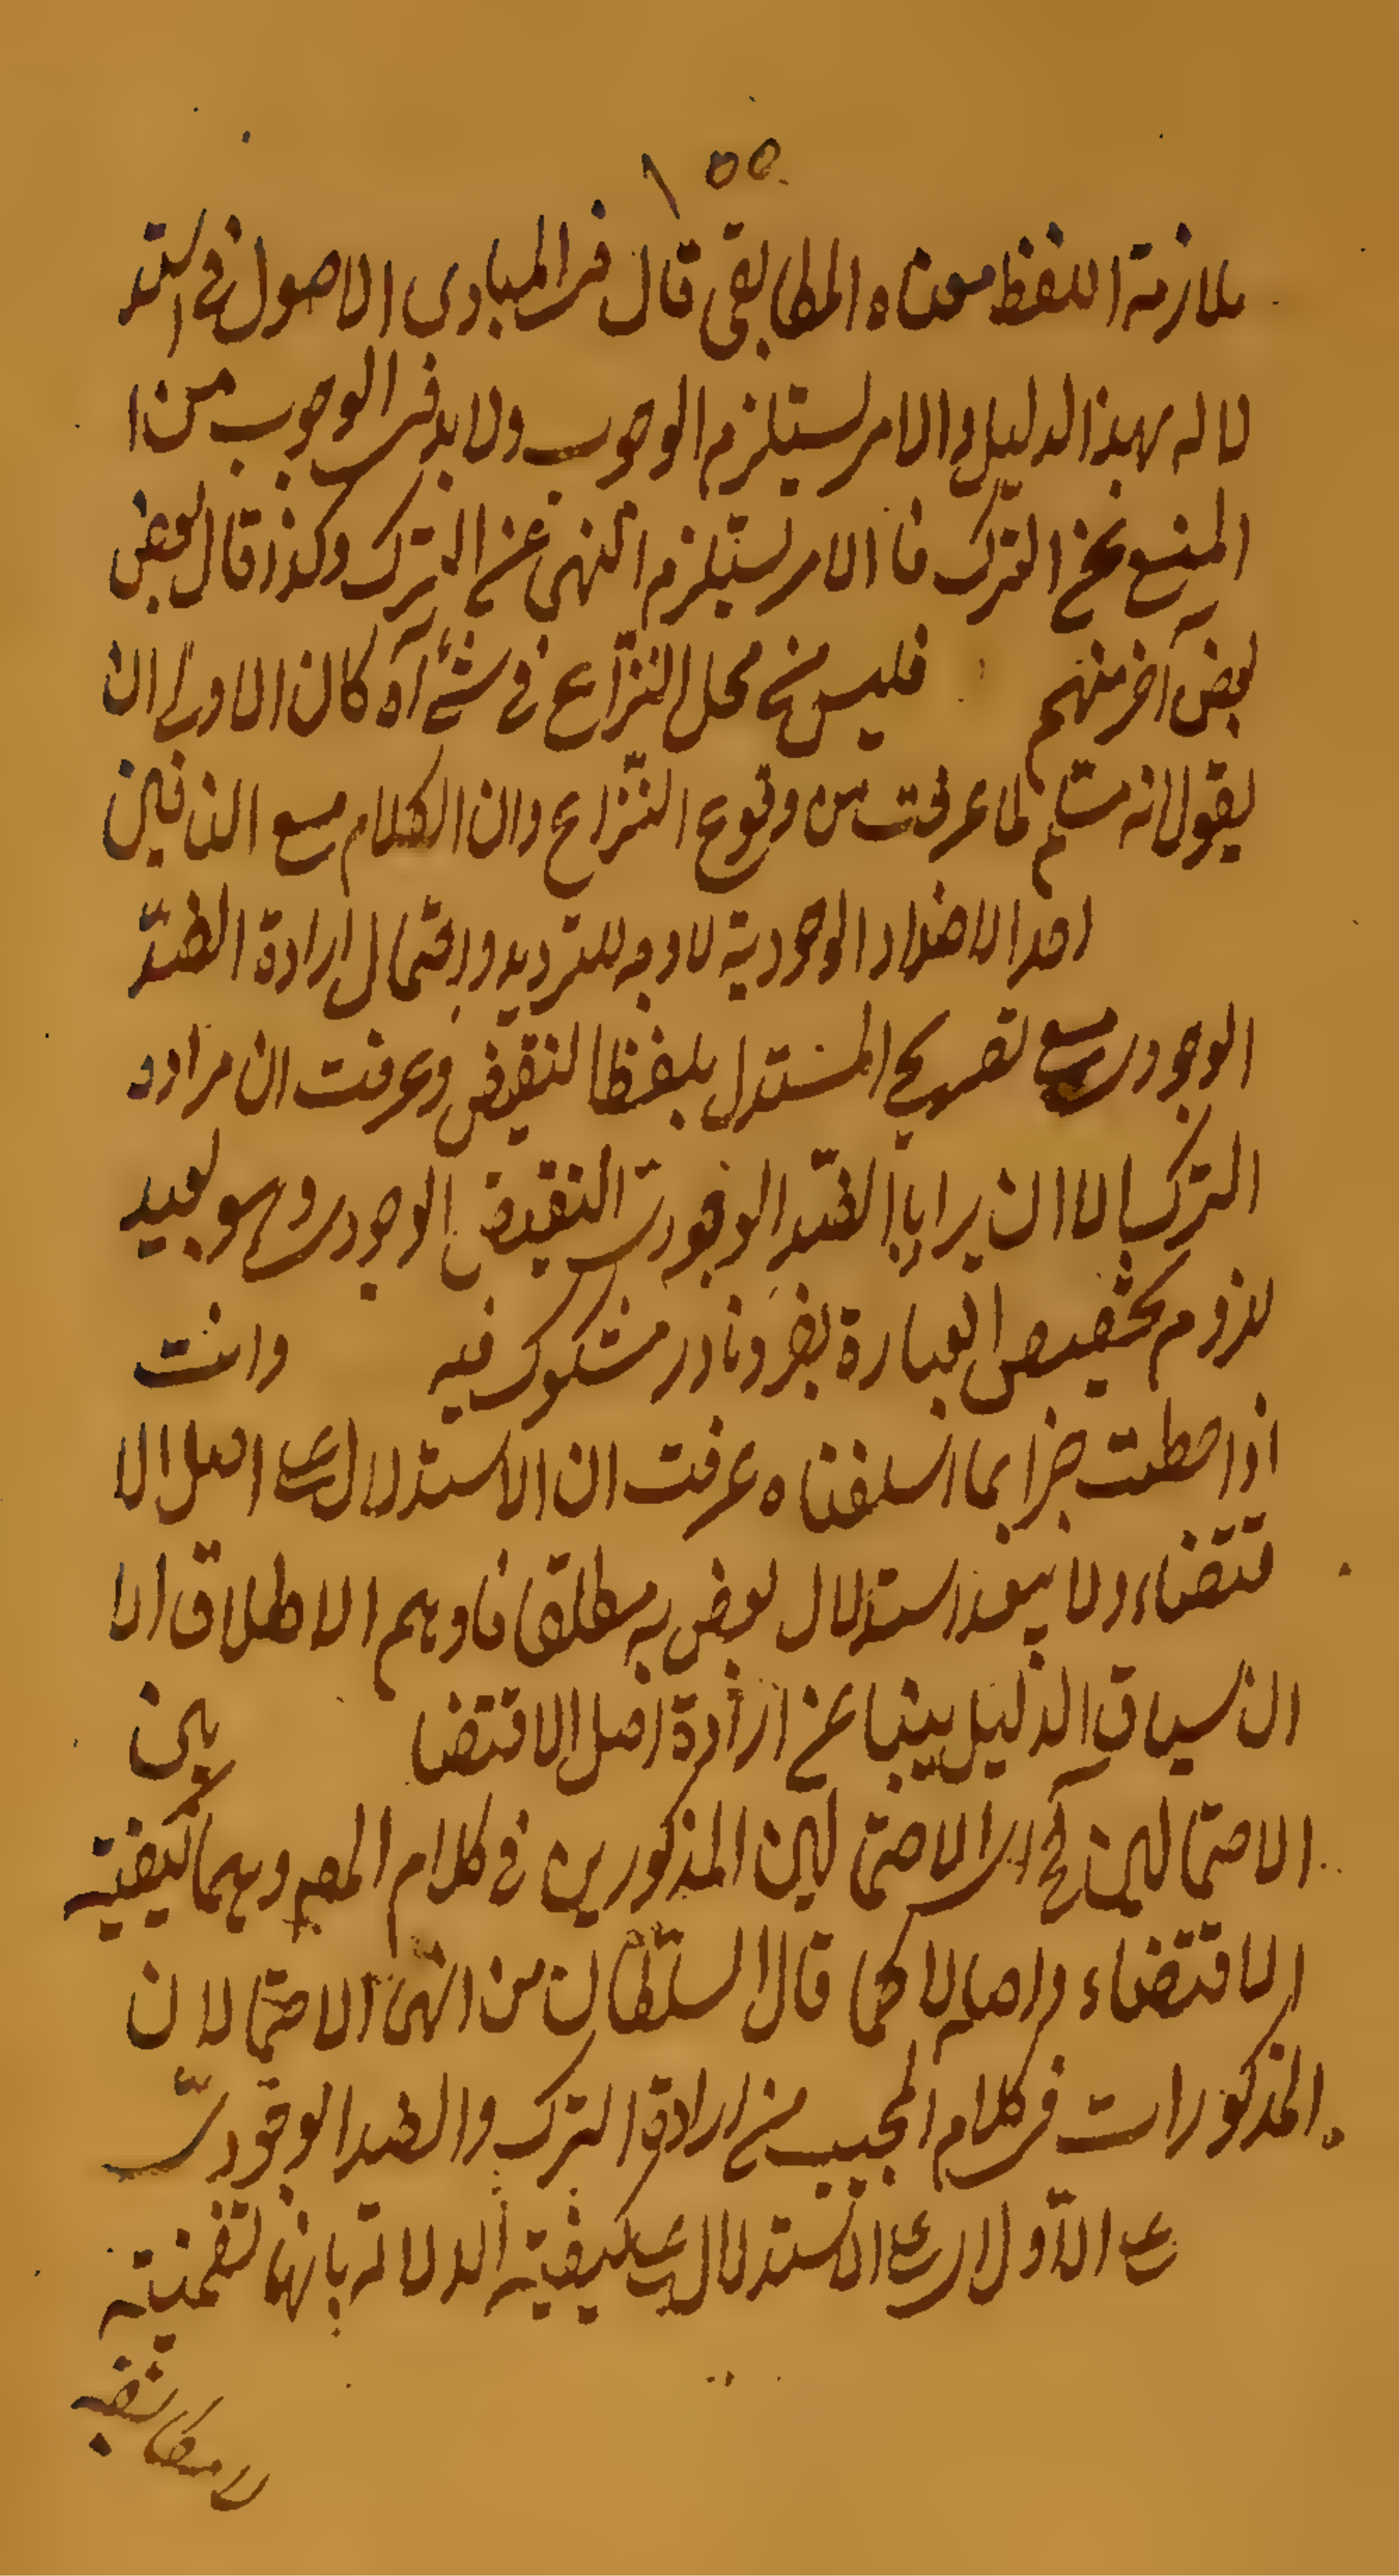 ١٥٥
ملازمة اللفظ معناه المطابقى قال فى المبادى الاصول فى استد
لاله بهذا الدليل والامر يستلزم الوجوب ولا بد فى الوجوب من ا
المنع عن الترك فا الامر يستلزم النهى عن الترك وكذا قال بعض
بعض آخر منهم فليس من محل النزاع فى شئ آه كان الاولى ان
يقول انه مسلم لما عرفت من وقوع النزاع وان الكلام مع النافين
احد الاضداد الوجودية لا وجه للترديد واحتمال ارادة الضد
الوجودى مع تصريح المستدل بلفظ النقيض وعرفت ان مراده
الترك الا ان يراد با الضد الوجودى النقيض الوجودى وهو بعيد
لزوم تخصيص العبارة بفرد نادر مشكوك فيه وانت
اذا احطت خبرا بما اسلفناه عرفت ان الاستدلال على اصل الا
قتضاء ولا يبعد استدلال بعض به مطلقا فاوهم الاطلاق الا
ان سياق الدليل ينبا عن ارادة اصل الاقتضا بين
الاحتمالين اى الاحتمالين المذكورين فى كلام المصم وهما كيفية
الاقتضاء واصله لا كما قال السلطان من انهما الاحتمالان
المذكورات فى كلام المجيب من ارادة الترك والضد الوجودى
على الاول اى على الاستدلال على كيفية الدلالة بانها تضمنية